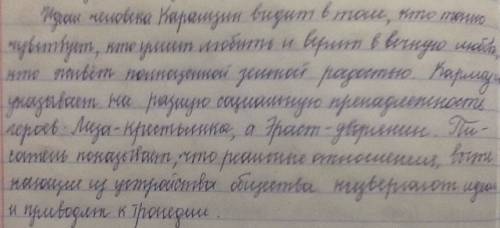 Идеал человека Карамзин видит в том, кто тонко
чувствует, кто умеет любить и верит в вечную любовь,
кто живёт полноценной земной радостью. Карамзин
указывает на разную социальную пренадлежность
героев: Лиза-крестьянка, а Эраст-дворянин. Пи-
сатель показывает, что реальные отношения, выте
кающие из устройства общества низвергают идеал
и приводят к трогедии.